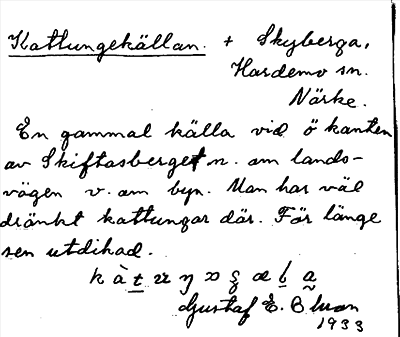 Kattungekällan. + Skyberga,
Hardemo sn.
Närke.
En gammal källa vid ö kanten
av Skiftasberget n. om lands-
vägen v. om byn. Man har väl
dränkt kattungar där. För länge
sen utdikad.
Gustaf E.
1933